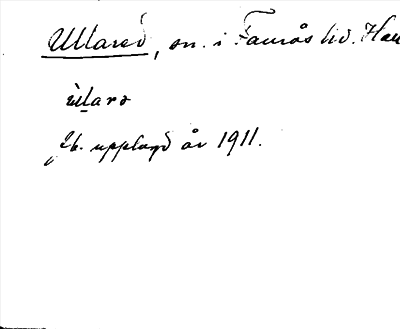 Ullared, sn. i Faurås hd. Hall
ùlarə
Jb. upplagd år 1911.